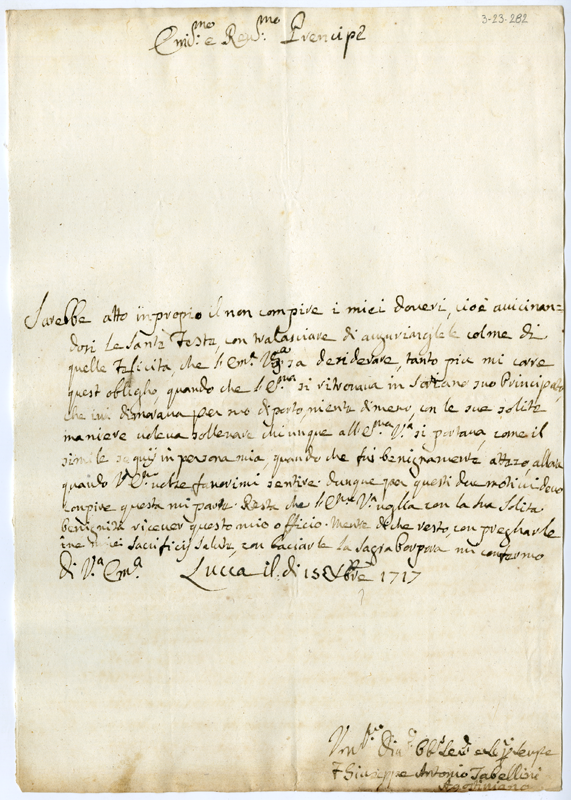 3-23-282
Em.mo e Reu.mo Prencipe
Sarebbe atto inproprio il non compire i miei doueri, cioè auicinan=
dosi le Sante Feste con tralasciare di auguriargliele colme di
quelle felicità, che l'Em.a V.ra sa desiderare, tanto più mi corre
quest obligho, quando che l'Em.a si ritrouaua in Soriano suo Principato
che iui dimoraua per suo diporto, niente dimeno, con le sue solite
maniere uoleua solleuare chiunque all'Em.a V.a si portaua, come il
simile seguì in persona mia, quando che fui benignamente atteso, allora
quando V.a Em.a
compire questa mi parte. Resta che l'Em.a V.a voglia con la sua solita
benignità riceuer questo mio officio. Mentre
ne miei Sacrificij Salute, con baciarle la Sagra Porpora mi confermo
di V.a Em.a Lucca il di 15 Xbre 1717
F Giuseppe Antonio Tabellini
Agostiniano